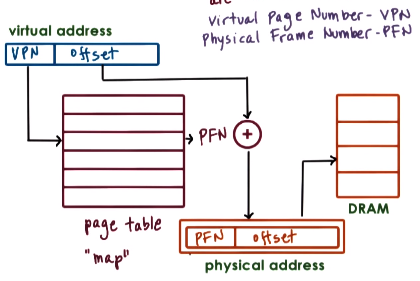 are
Virtual Page Number - VPN
Physical Frame Number - PFN
virtual address
VPN offset
PFN +
DRAM
page table
"map"
PFN offset
physical address